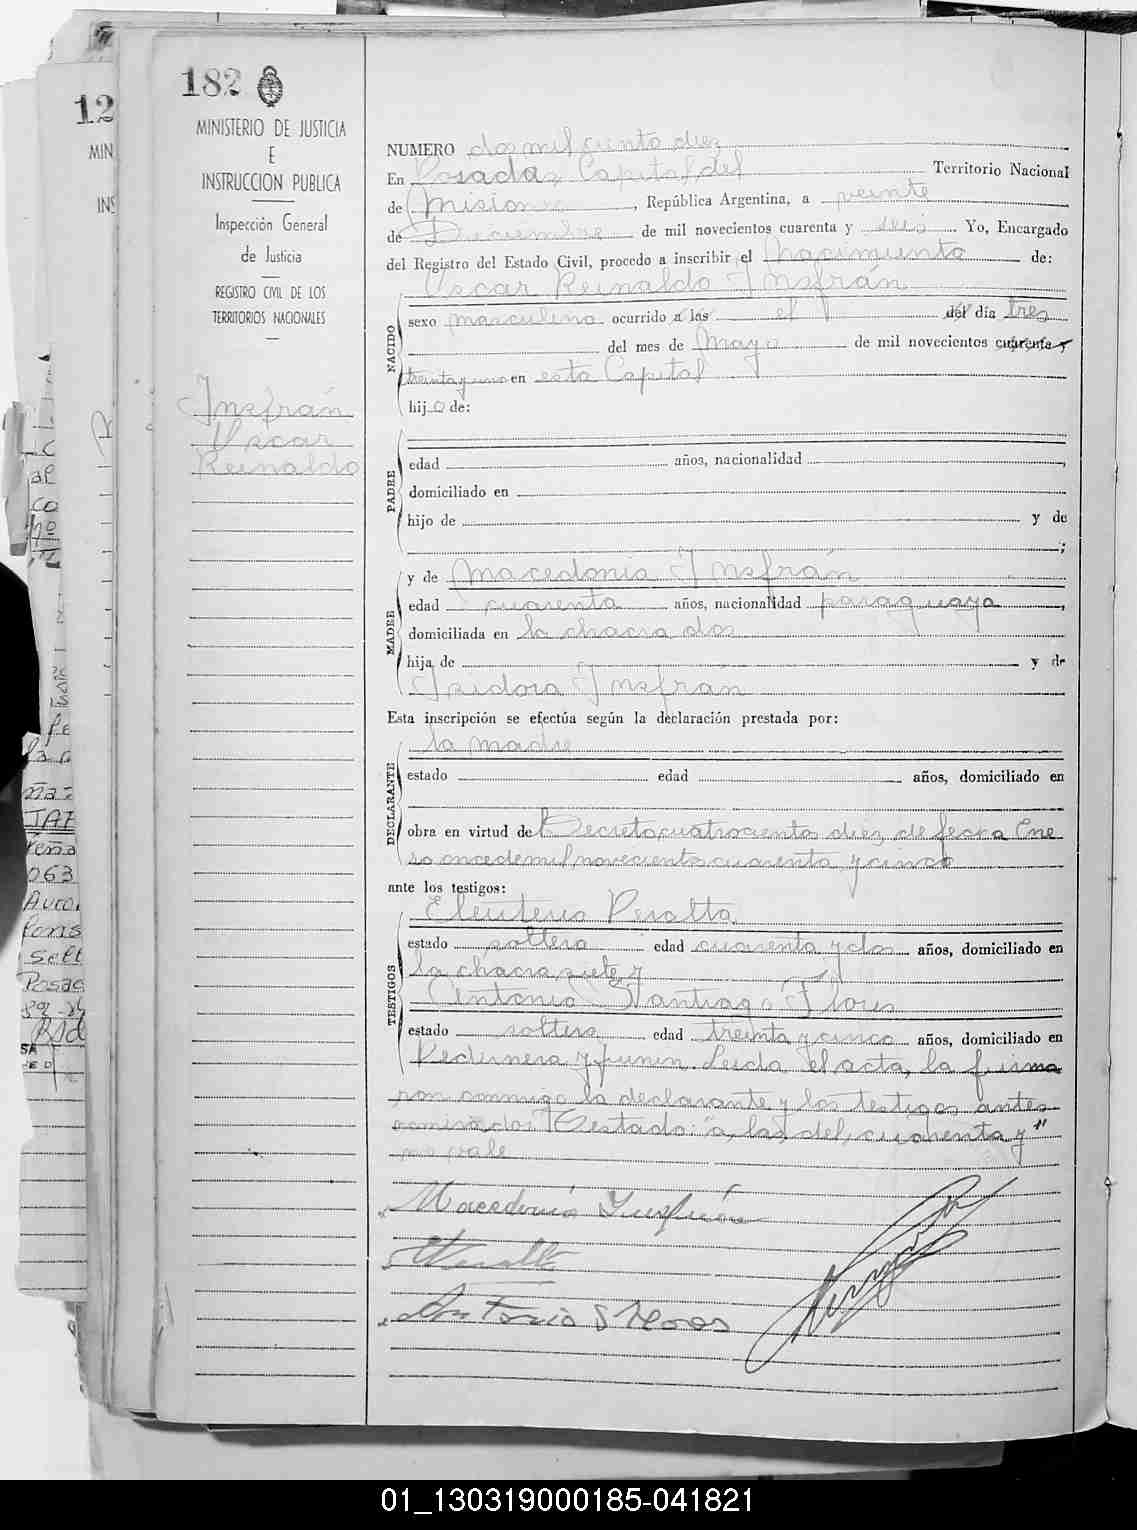 182
MINISTERIO DE JUSTICIA
E
INSTRUCCION PUBLICA
Inspección General
de Justicia
REGISTRO CIVIL DE LOS
TERRITORIOS NACIONALES
Insfrán
Oscar
Reinaldo
12
MIN
INS
NUMERO dos mil ciento diez
En Posadas, Capital del Territorio Nacional
de Misiones, República Argentina, a veinte
de Diciembre de mil novecientos cuarenta y seis. Yo, Encargado
del Registro del Estado Civil, procedo a inscribir el nacimiento de:
Oscar Reinaldo Insfrán
NACIDO
sexo masculino ocurrido a las el del día tres
del mes de Mayo de mil novecientos cuarenta y
treinta y uno en esta Capital
hijo de:
PADRE
edad años, nacionalidad ,
domiciliado en
hijo de y de
;
MADRE
y de Macedonia Insfrán
edad cuarenta años, nacionalidad paraguaya,
domiciliada en la chacra dos
hija de y de
Isidora Insfrán
Esta inscripción se efectúa según la declaración prestada por:
DECLARANTE
la madre
estado edad años, domiciliado en
obra en virtud de Decreto cuatrociento diez, de fecha Ene
ro once de mil novecientos cuarenta y cinco
ante los testigos:
TESTIGOS
Eleuterio Peralta
estado soltero edad cuarenta y dos años, domiciliado en
la chacra siete y
Antonio Santiago Flores
estado soltero edad treinta y cinco años, domiciliado en
Pedernera y Junin. Leida el acta, la firma
ron conmigo la declarante y los testigos antes
nominados. Testado: "a, las, del, cuarenta y"
no vale
Macedonia Insfrán
Peralta
Antonio S Flores
01_130319000185-041821